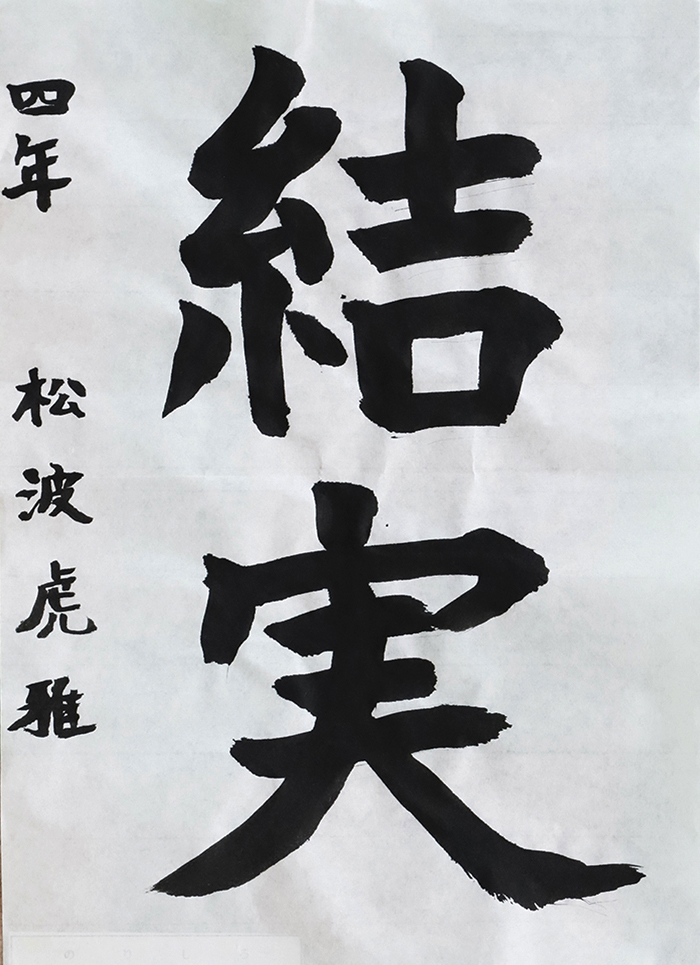 結実
四年 松波虎雅